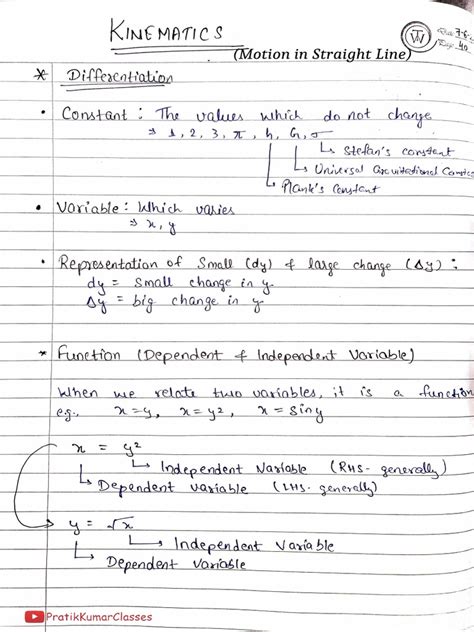 KINEMATICS
(Motion in Straight Line)
* Differentiation
• Constant : The values which do not change
⇒ 1, 2, 3, π, h, G, σ
Stefan's constant
Universal Gravitational Constant
Plank's Constant
• Variable : Which varies
⇒ x, y
• Representation of Small (dy) & large change (Δy) :
dy = Small change in y.
Δy = big change in y.
* Function (Dependent & Independent Variable)
When we relate two variables, it is a function
eg., x=y, x=y², x=siny
x = y²
Independent Variable (RHS- generally)
Dependent variable (LHS- generally)
y = √x
Independent Variable
Dependent Variable
PratikKumarClasses